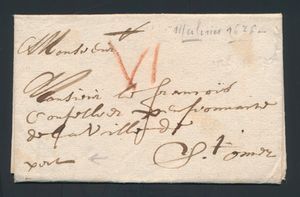 Malines 1676
Monsieur
VI
Monsieur le francois
Conseiller pensionnaire
de la Ville de
St omer
port